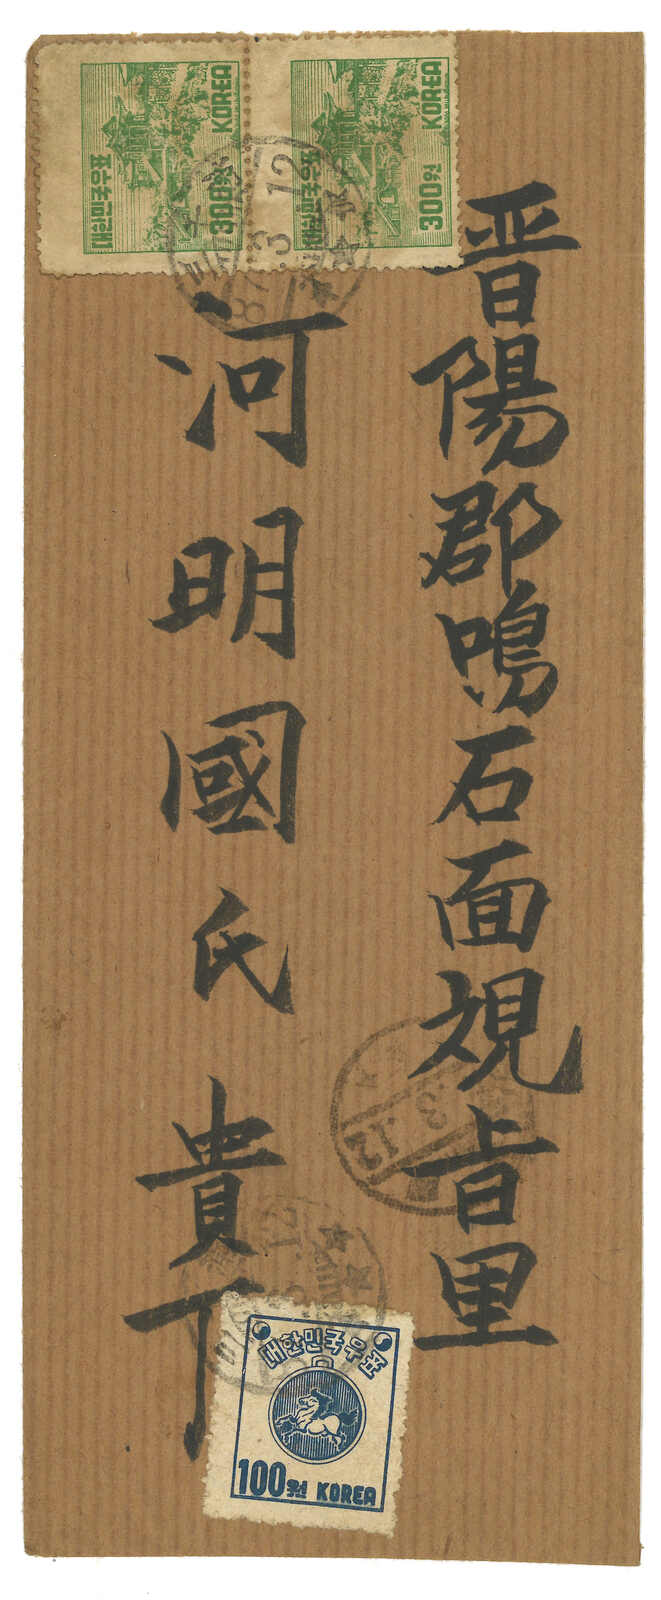 晋陽郡鳴石面覌旨里
河明國氏 貴下
대한민국우표
300원 KOREA
대한민국우표
300원 KOREA
3 12
3 .12
대한민국우표
100원 KOREA